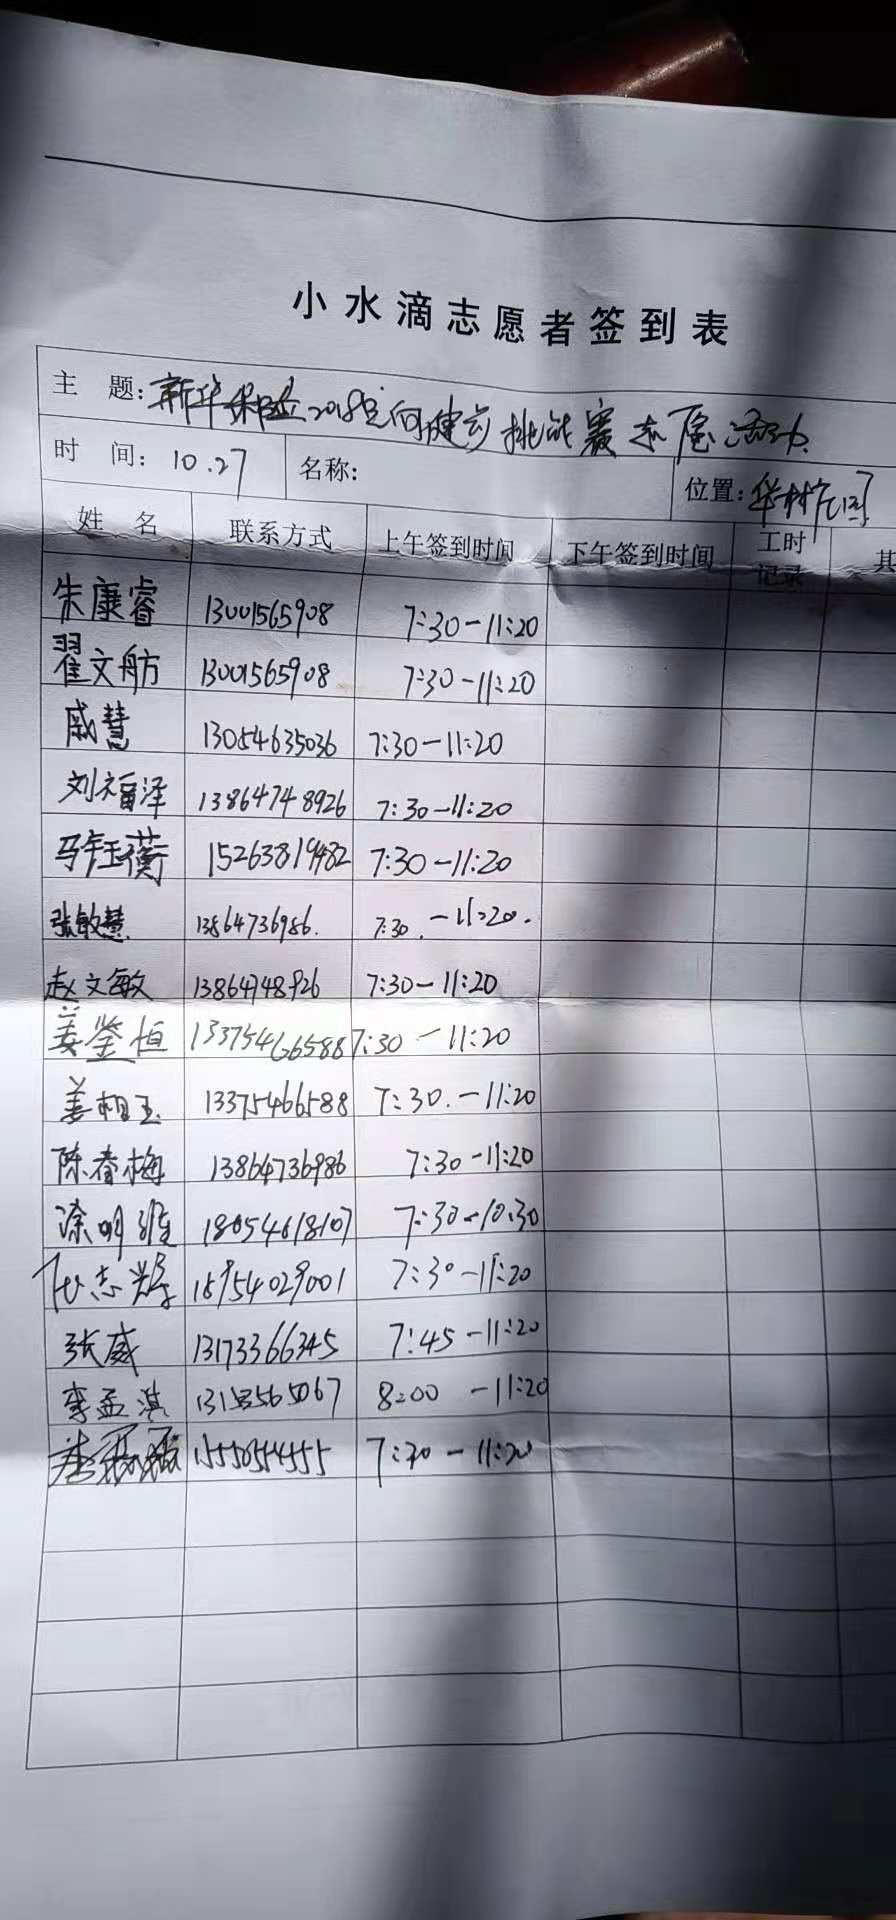 小水滴志愿者签到表
主 题: 新华保险2018定向健步挑战赛志愿活动
时 间: 10.27 名称: 位置:
姓 名 联系方式 上午签到时间 下午签到时间 工时记录 其
朱康睿 13001565908 7:30-11:20
翟文舫 13001565908 7:30-11:20
戚慧 13054635036 7:30-11:20
刘福泽 13864748926 7:30-11:20
马钰蘅 15263819482 7:30-11:20
张敏慧 13864736986. 7:30.-11:20.
赵文敏 13864748926 7:30-11:20
姜鉴恒 13375466588 7:30-11:20
姜相玉 13375466588 7:30.-11:20
陈春梅 13864736986 7:30-11:20
涂明维 18054618107 7:30-10:30
伍志 18954029001 7:30-11:20
张威 13173366345 7:45-11:20
李孟淇 8:00-11:20
7:30-11:20